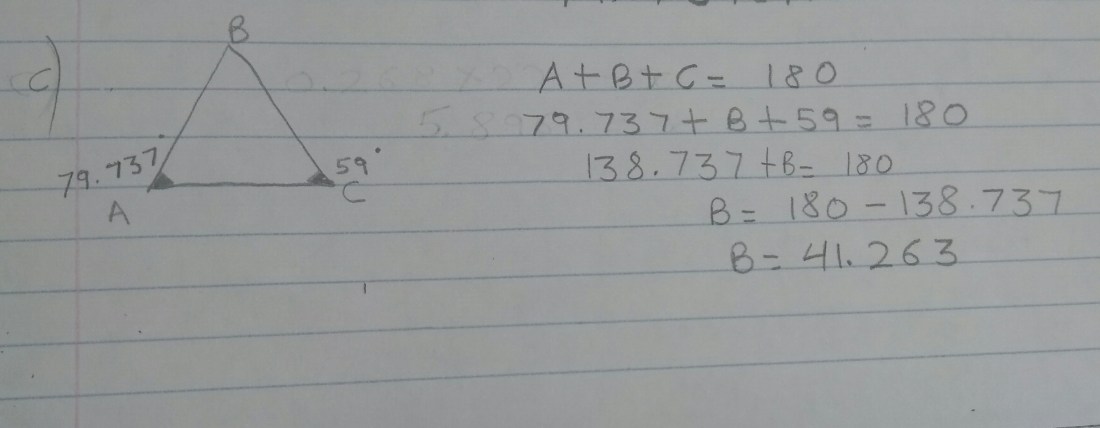 C)
B
79.737°
A
59°
C
A + B + C = 180
79.737 + B + 59 = 180
138.737 + B = 180
B = 180 - 138.737
B = 41.263